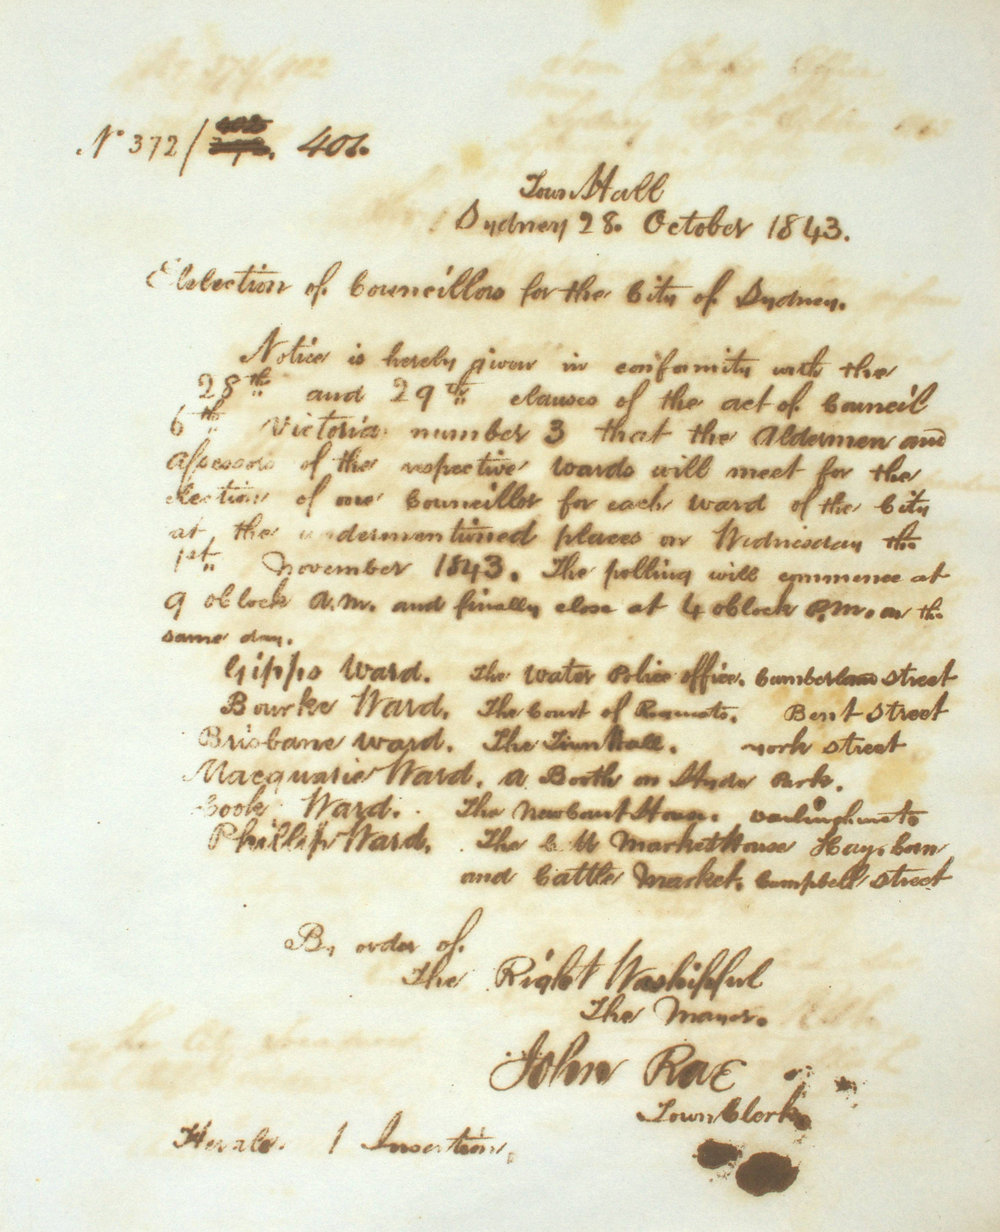 No 372/ 401.
Town Hall
Sydney 28. October 1843.
Election of Councillors for the City of Sydney.
Notice is hereby given in conformity with the
28th and 29th clauses of the act of Council
6th Victoria number 3 that the Aldermen and
assessors of the respective wards will meet for the
election of one Councillor for each ward of the City
at the undermentioned places on Wednesday the
1st November 1843. The polling will commence at
9 oClock A.M. and finally close at 4 oClock P.M. on the
same day.
Gipps Ward. The Water Police office. Cumberland Street
Bourke Ward. The Court of Requests. Bent Street
Brisbane Ward. The Town Hall. York Street
Macquarie Ward. a Booth on Hyde Park.
Cook Ward. The New Court House. Darlinghurst
Phillip Ward. The Market House Hay, Corn
and Cattle Market. Campbell Street
By order of.
The Right Worshipful
The Mayor.
John Rae
Town Clerk
Herald. 1 Insertion.